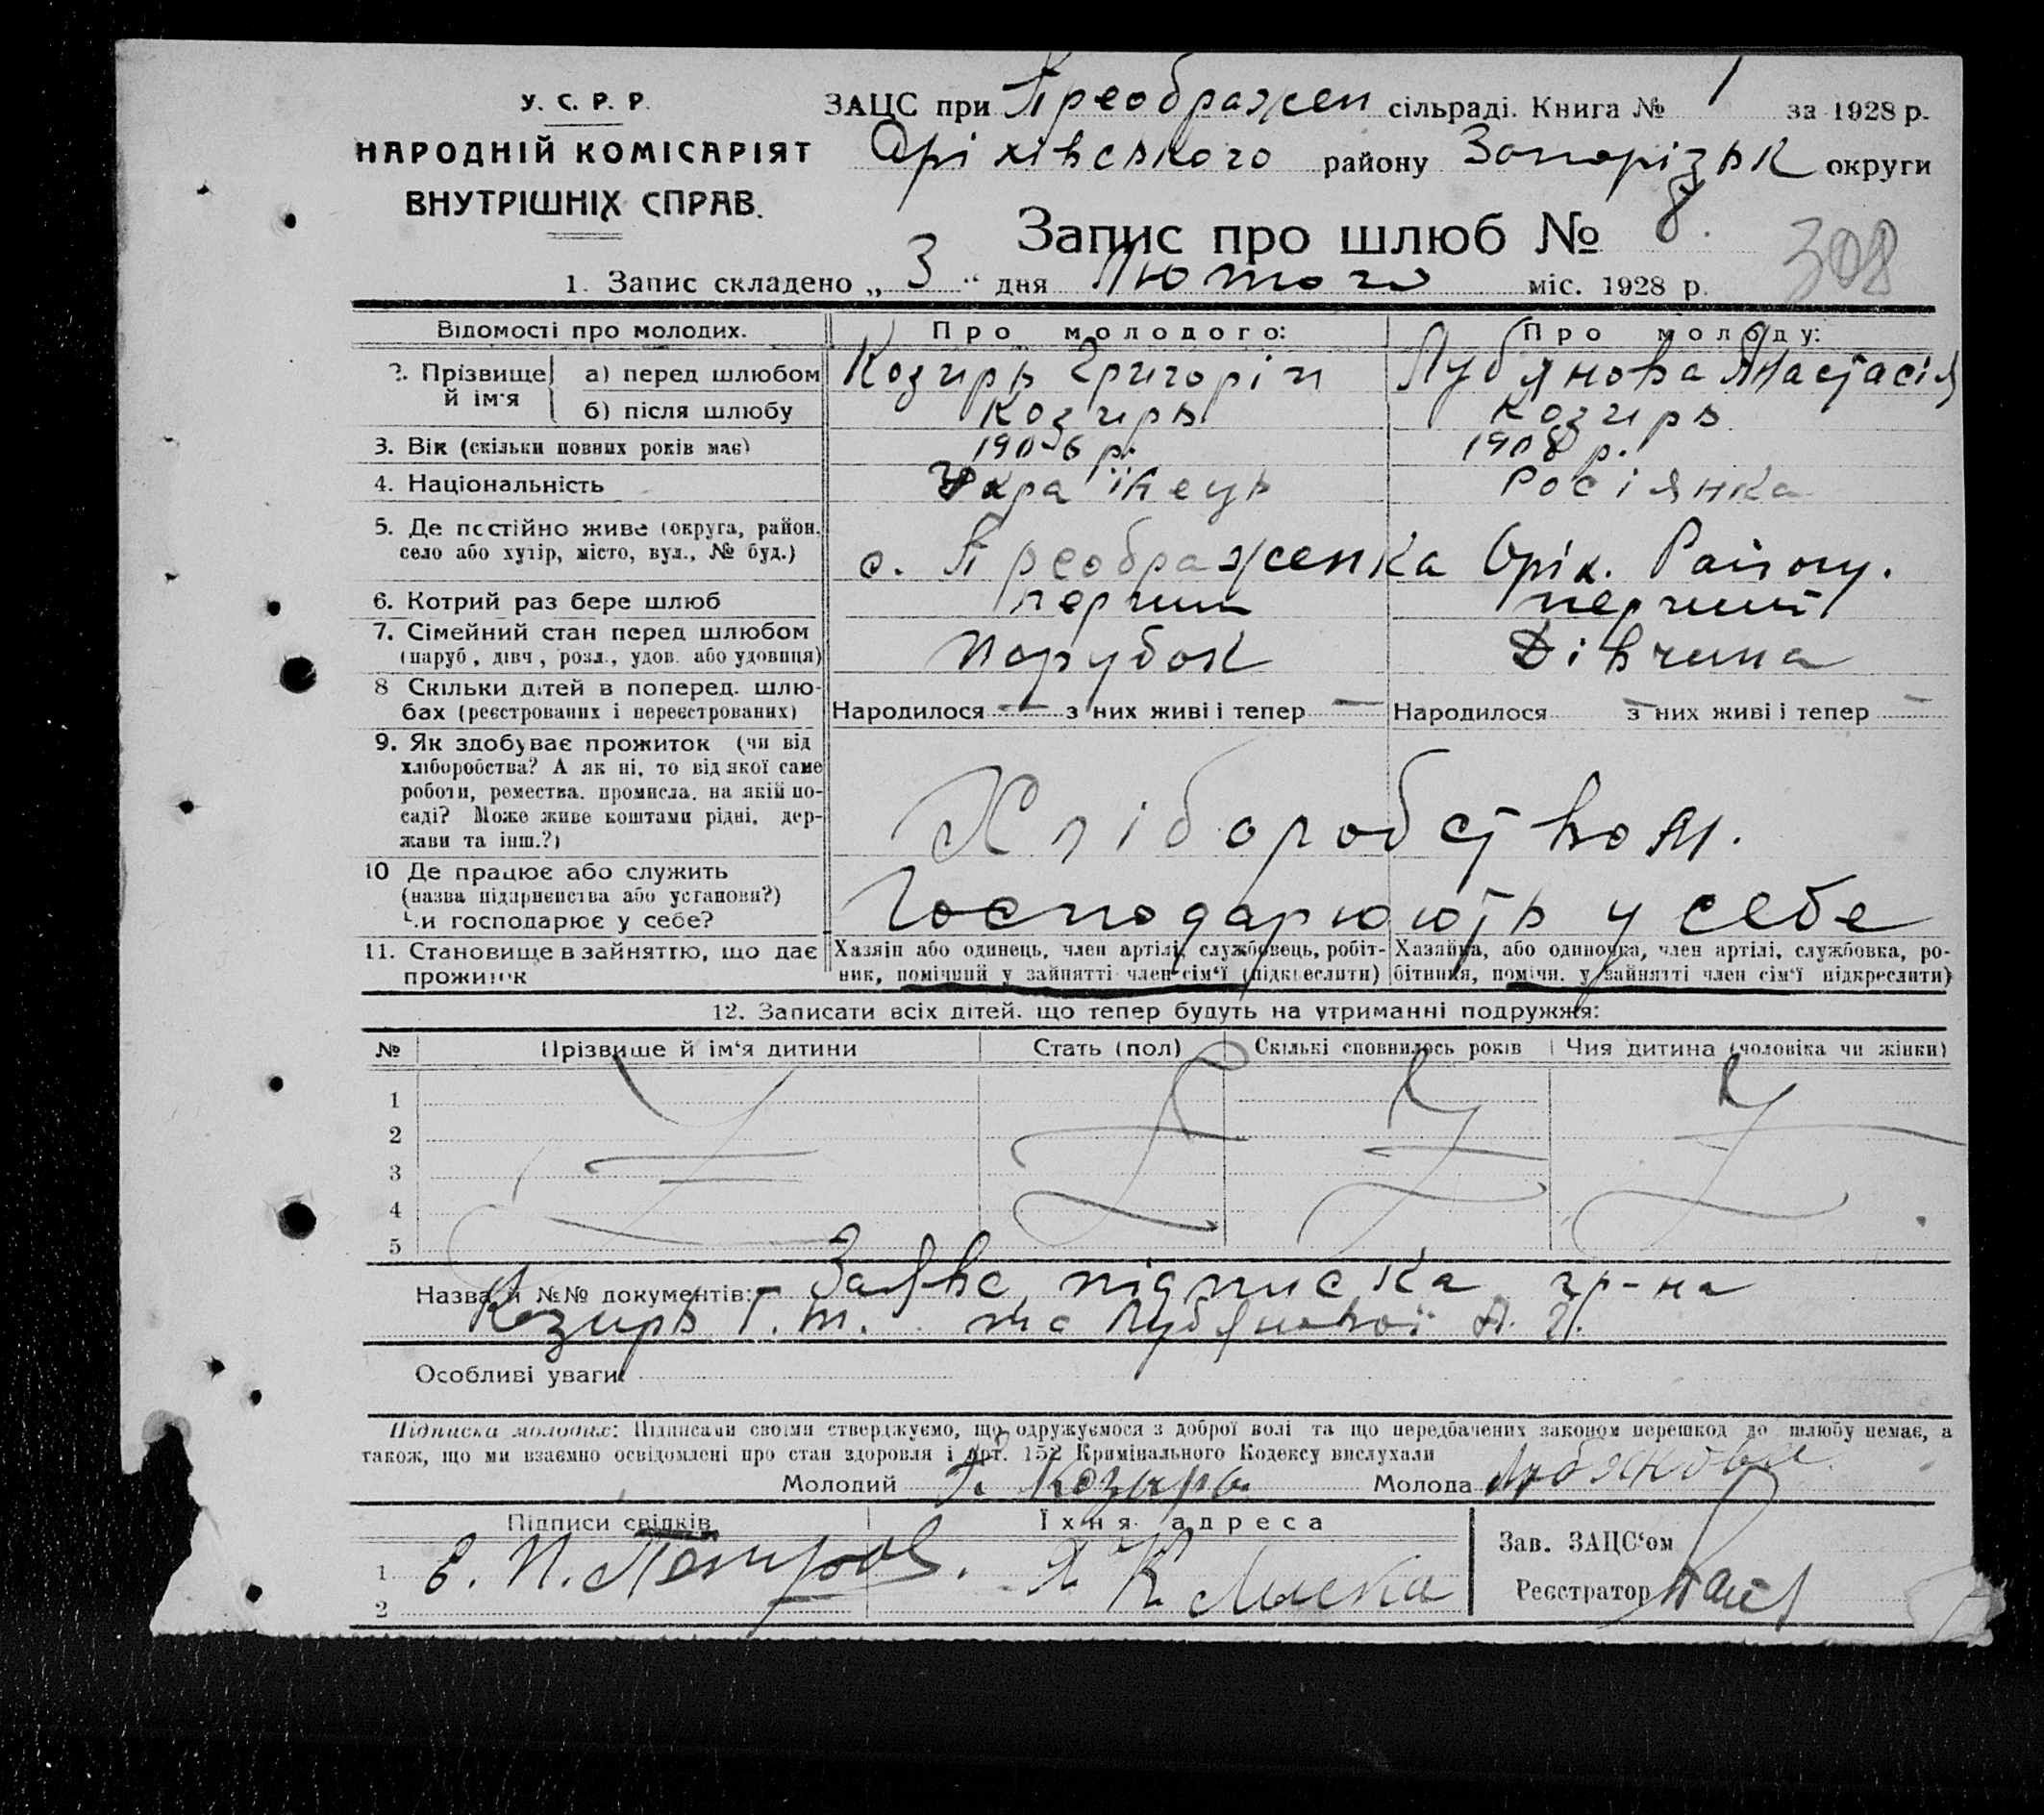 У. С. Р. Р.
НАРОДНІЙ КОМІСАРІЯТ
ВНУТРІШНІХ СПРАВ.
ЗАЦС при Преображен сільраді. Книга № 1 за 1928 р.
Оріхівського району Запорізьк округи
Запис про шлюб № 8.
308
1. Запис складено „ 3 " дня Лютого міс. 1928 р.
Відомості про молодих. Про молодого: Про молоду:
2. Прізвище й ім'я а) перед шлюбом Козирь Григорій Лубянова Анастасія
б) після шлюбу Козирь Козирь
3. Вік (скільки повних років має) 1906 р. 1908 р.
4. Національність Українець Росіянка
5. Де постійно живе (округа, район,
село або хутір, місто, вул., № буд.) с. Преображенка Оріх. Району.
6. Котрий раз бере шлюб перший перший
7. Сімейний стан перед шлюбом
(паруб, дівч, розл., удов. або удовиця) Парубок Дівчина
8 Скільки дітей в поперед. шлю-
бах (реєстрованих і нереєстрованих) Народилося — з них живі і тепер — Народилося з них живі і тепер —
9. Як здобуває прожиток (чи від
хліборобства? А як ні, то від якої саме
роботи, ремества, промисла, на якій по-
саді? Може живе коштами рідні, дер-
жави та інш.?)
Хліборобством.
10 Де працює або служить
(назва підприємства або установи?)
Чи господарює у себе?
Господарюють у себе
11. Становище в зайняттю, що дає
прожиток
Хазяін або одинець, член артілі, службовець, робіт-
ник, помічний у зайнятті член сім'ї (підкреслити)
Хазайка, або одиночка, член артілі, службовка, ро-
бітниця, помічн. у зайнятті член сім'ї підкреслити)
12. Записати всіх дітей, що тепер будуть на утриманні подружжя:
№ Прізвище й ім'я дитини Стать (пол) Скількі сповнилось років Чия дитина (чоловіка чи жінки)
1
2
3
4
5
Назва й №№ документів: Заява підписка гр-на
Козирь Г. Т. та Лубянової А.
Особливі уваги
Підписка молодих: Підписами своіми стверджуємо, що одружуємося з доброї волі та що передбачених законом перешкод до шлюбу немає, а
також, що ми взаємно освідомлені про стан здоровля і арт. 152 Кримінального Кодексу вислухали
Молодий Г. Козирь Молода Лубянова
Підписи свідків Їхня адреса
Зав. ЗАЦС'ом
1 Е. П. Петров.
Реєстратор
2